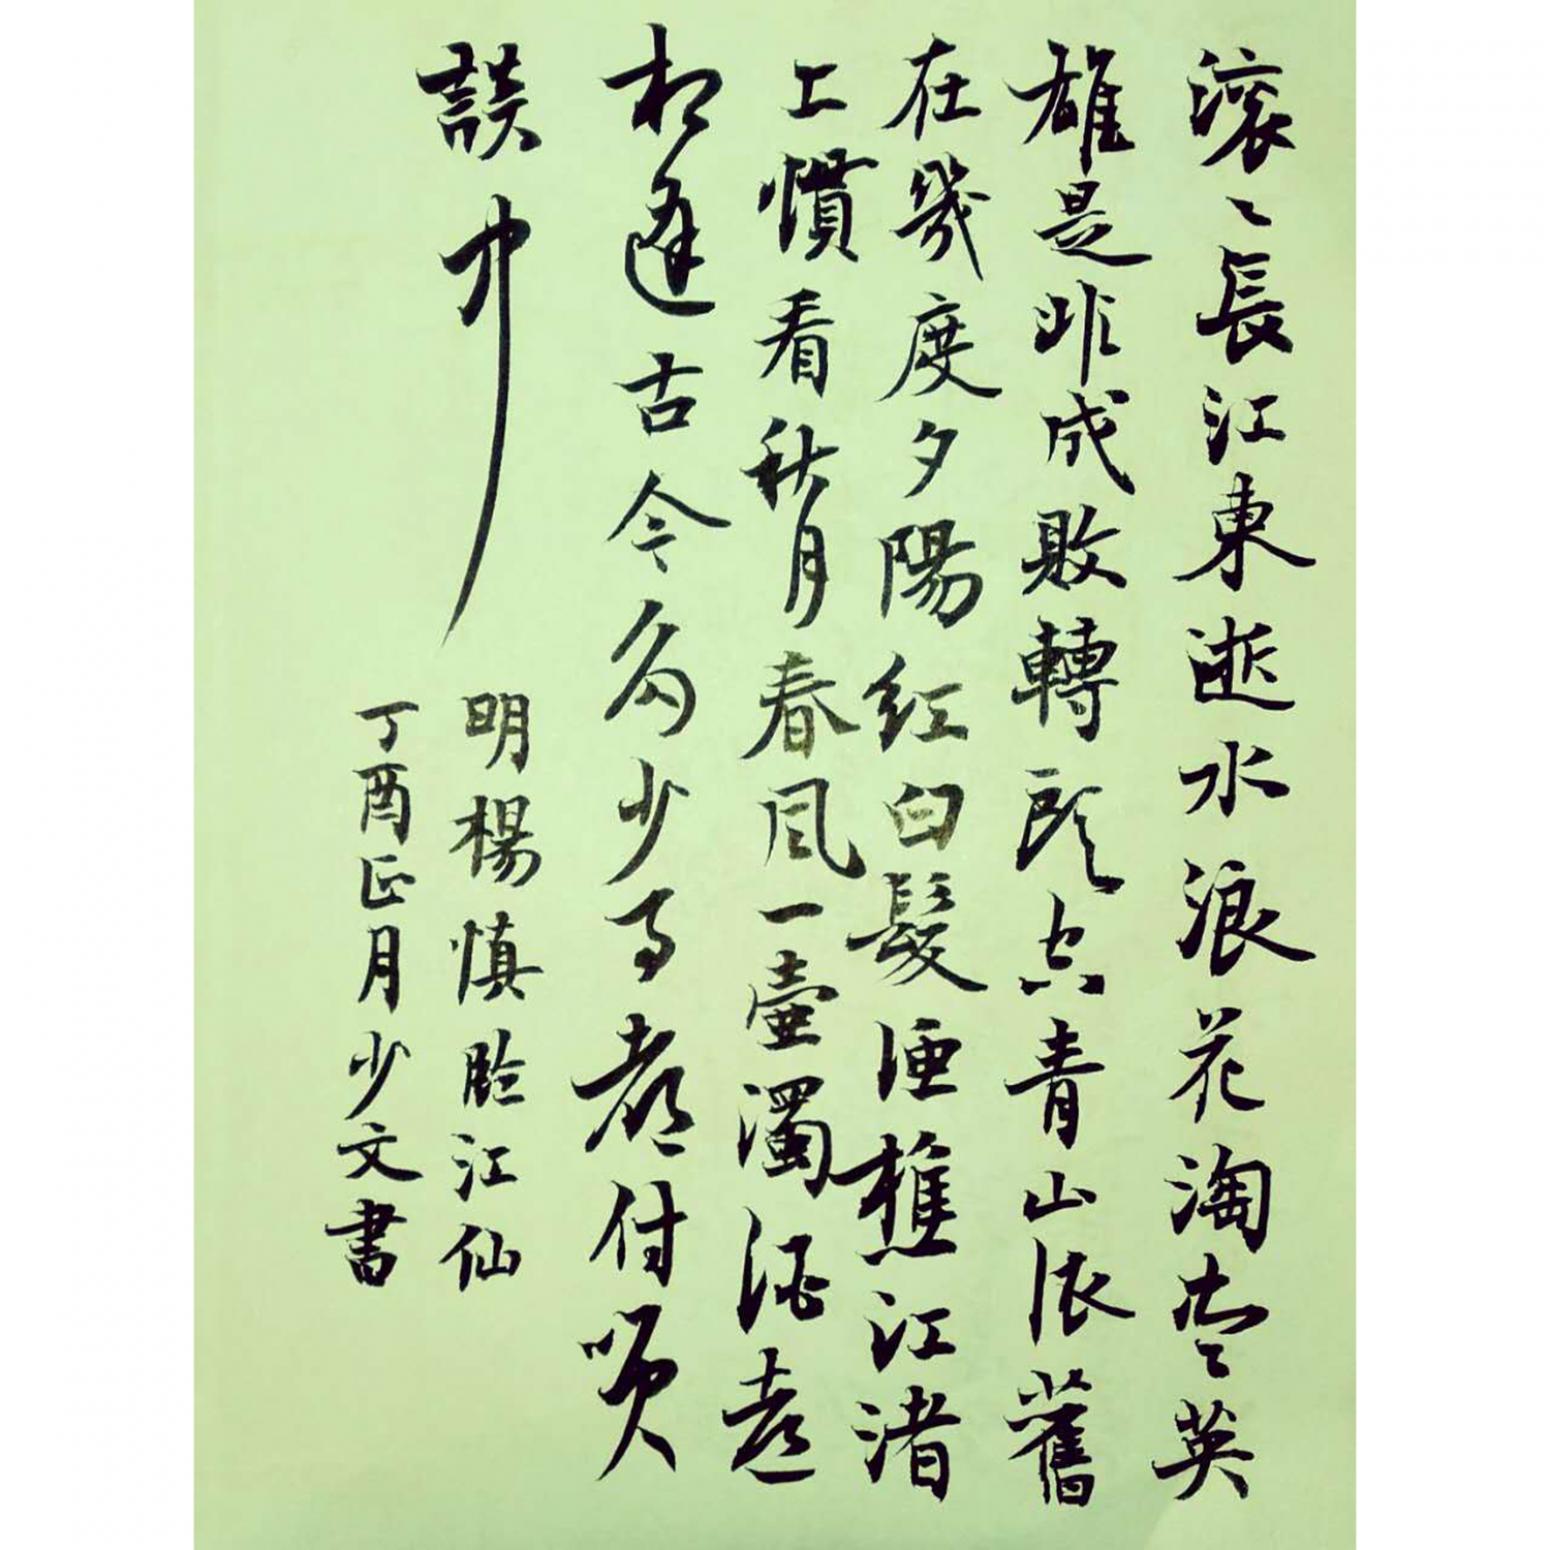 滾〻長江東逝水浪花淘盡英
雄是非成敗轉頭空青山依舊
在幾度夕陽紅白髮漁樵江渚
上慣看秋月春風一壺濁酒喜
相逢古今多少事都付笑
談中
明楊慎臨江仙
丁酉正月少文書